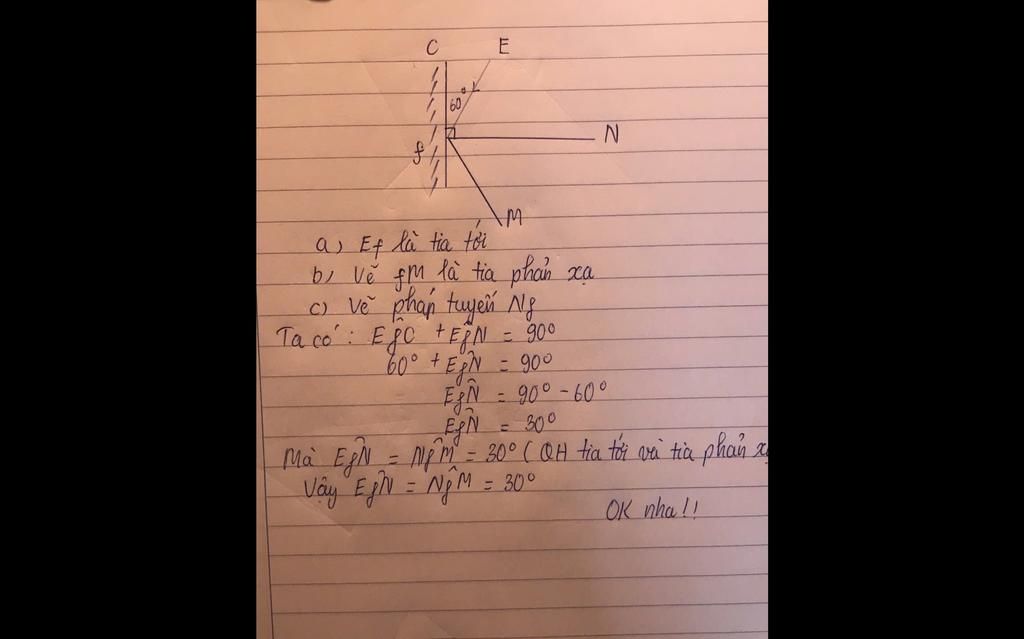 C E
60°
N
f
M
a) Ef là tia tới
b) Vẽ fM là tia phản xạ
c) Vẽ pháp tuyến Nf
Ta có: EfC + EfN = 90°
60° + EfN = 90°
EfN = 90° - 60°
EfN = 30°
Mà EfN = NfM = 30° ( QH tia tới và tia phản
Vậy EfN = NfM = 30°
OK nha!!